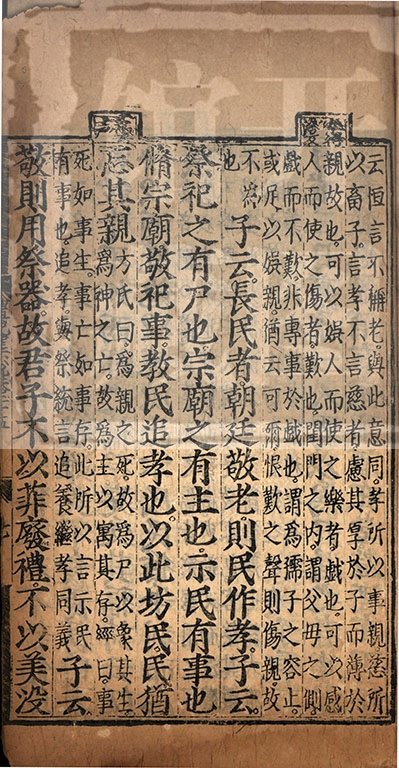 云恒言不稱老。與此意同。孝所以事親慈所
以畜子。言孝不言慈者慮其厚於子而薄於
親故也。可以娛人而使之樂者戲也。可以感
人而使之傷者歎也。閨門之内。謂父母之側。
戲而不歎。非專事於戲也。謂爲孺子之容止。
或足以娛親。猶云可爾。恨歎之聲則傷親。故
不爲
也
子云。長民者。朝廷敬老。則民作孝。子云。
祭祀之有尸也。宗廟之有主也。示民有事也
脩宗廟敬祀事。教民追孝也。以此坊民。民猶
忘其親
方氏曰。爲親之死。故爲尸以象其生。
爲神之亡。故爲主以寓其存。經曰。事
死如事生。事亡如事存。此所以言示民
有事也。追孝。與祭統言追養繼孝同義
子云
敬則用祭器。故君子不以菲廢禮。不以美没